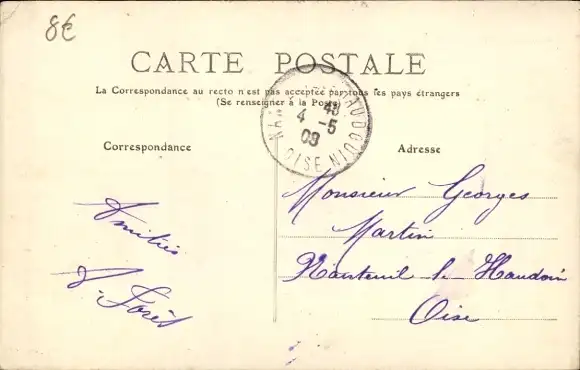 8€
CARTE POSTALE
La Correspondance au recto n'est pas acceptée par tous les pays étrangers
(Se renseigner à la Poste)
4 -5
09
OISE
Correspondance
Adresse
Amitiés
Monsieur Georges
Martin
Nanteuil le Haudoin
Oise